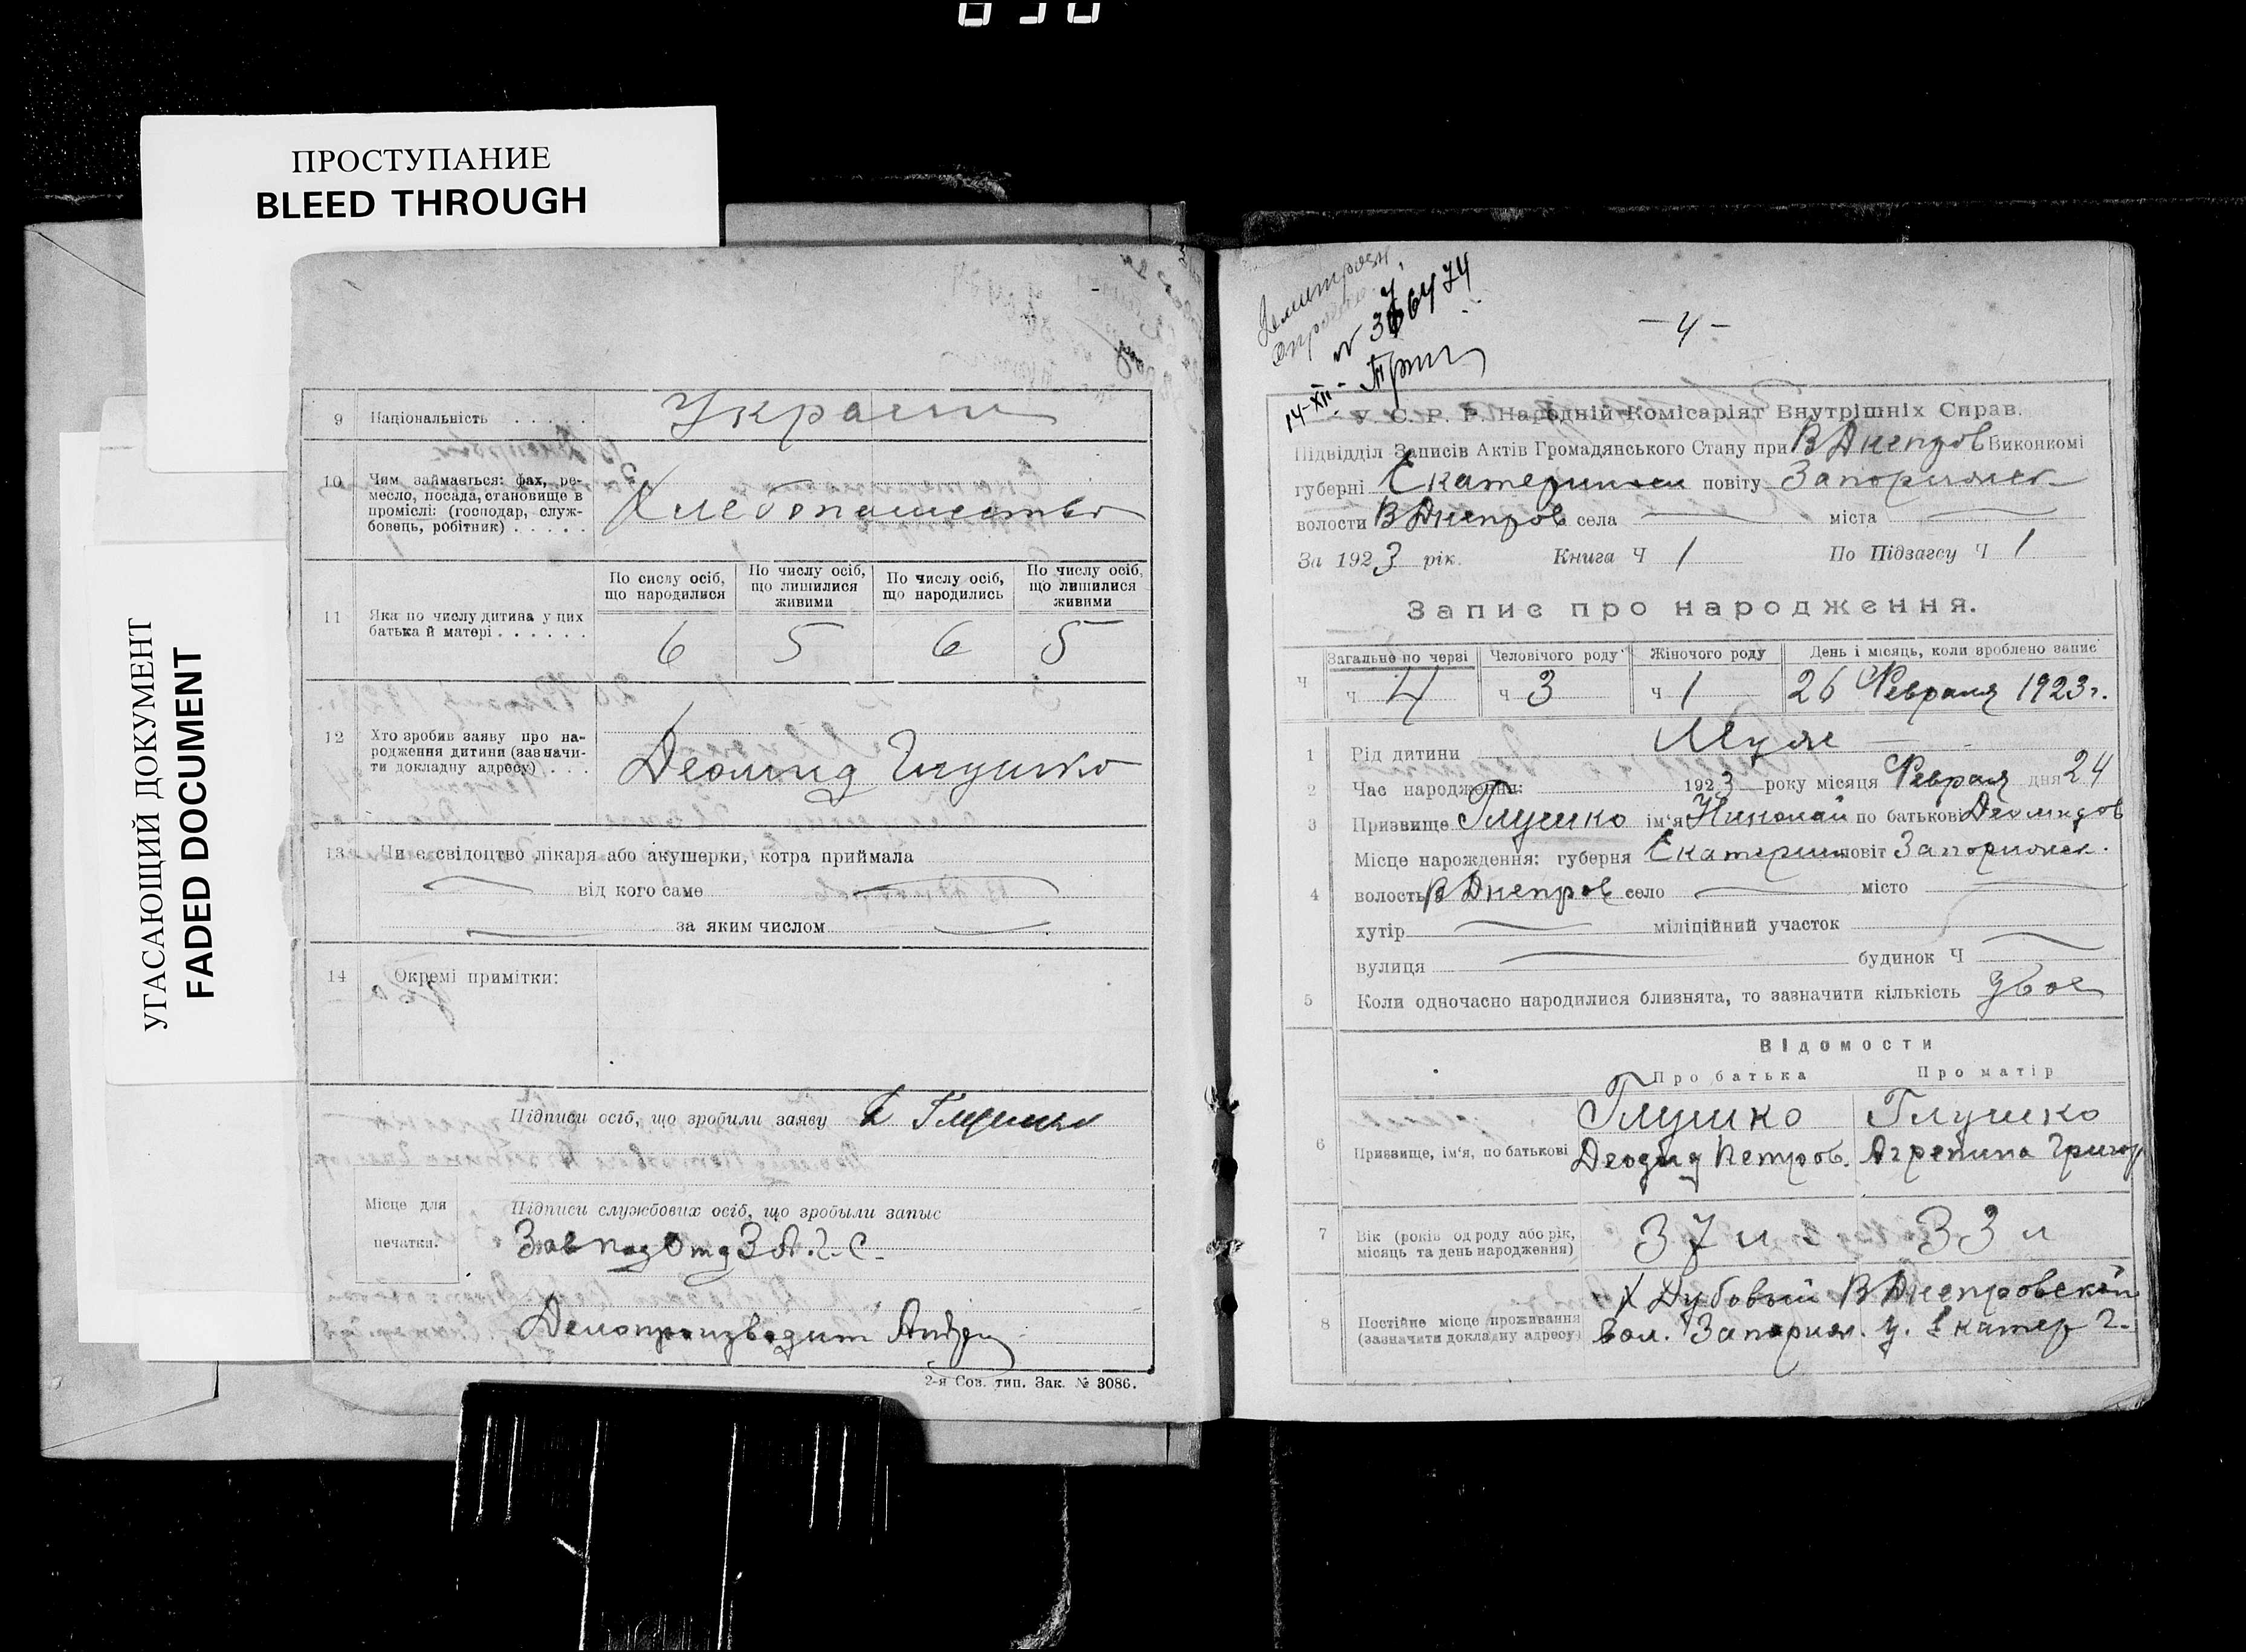 ПРОСТУПАНИЕ
BLEED THROUGH
УГАСАЮЩИЙ ДОКУМЕНТ
FADED DOCUMENT
9 Національність . . . . . Украин
10 Чим займається: фах, ре-
месло, посада, становище в
проміслі: (господар, служ-
бовець, робітник) . . . . . Хлебопашество
11 Яка по числу дитина у цих
батька й матері . . . . . .
По сислу осіб,
що народилися
По числу осіб,
що лишилися
живими
По числу осіб,
що народились
По числу осіб,
що лишилися
живими
6 5 6 5
12 Хто зробив заяву про на-
родження дитини (зазначи-
ти докладну адресу) . . . Деомид Глушко
13 Чи є свідоцтво лікаря або акушерки, котра приймала
від кого саме
за яким числом
14 Окремі примітки:
Підписи осіб, що зробили заяву Глушко
Місце для
печатки.
Підписи службових осіб, що зробыли запыс
Зав подОтд З.А.Г.С.
Делопроизводит
2-я Сов. тип. Зак. № 3086.
14-XII-
- 4 -
У. С. Р. Р. Народній Комісаріят Внутрішніх Справ.
Підвідділ Записів Актів Громадянського Стану при В Днепров Виконкомі
губерні Екатеринен повіту Запорижск
волости В Днепров села міста
За 1923 рік. Книга Ч 1 По Підзагсу Ч 1
Запис про народження.
Ч
Загальне по черзі Человічого роду Жіночого роду День і місяць, коли зроблено запис
Ч 4 Ч 3 Ч 1 26 Февраля 1923 г.
1 Рід дитини Муж
2 Час народження: 1923 року місяця Февраля дня 24
3 Призвище Глушко ім'я Николай по батькові Деомидов
Місце народження: губерня Екатерин повіт Запорижск.
4 волость В Днепров село місто
хутір міліційний участок
вулиця будинок Ч
5 Коли одночасно народилися близнята, то зазначити кількість двое
Відомости
Про батька Про матір
6 Призвище, ім'я, по батькові
Глушко Глушко
Деомид Петров. Агрепина Григор
7 Вік (років од роду або рік,
місяць та день народження) 37 л 33 л
8 Постійне місце проживання
(зазначити докладну адресу)
Х Дубовый В Днепровской
вол. Запориж. у. Екатер г.